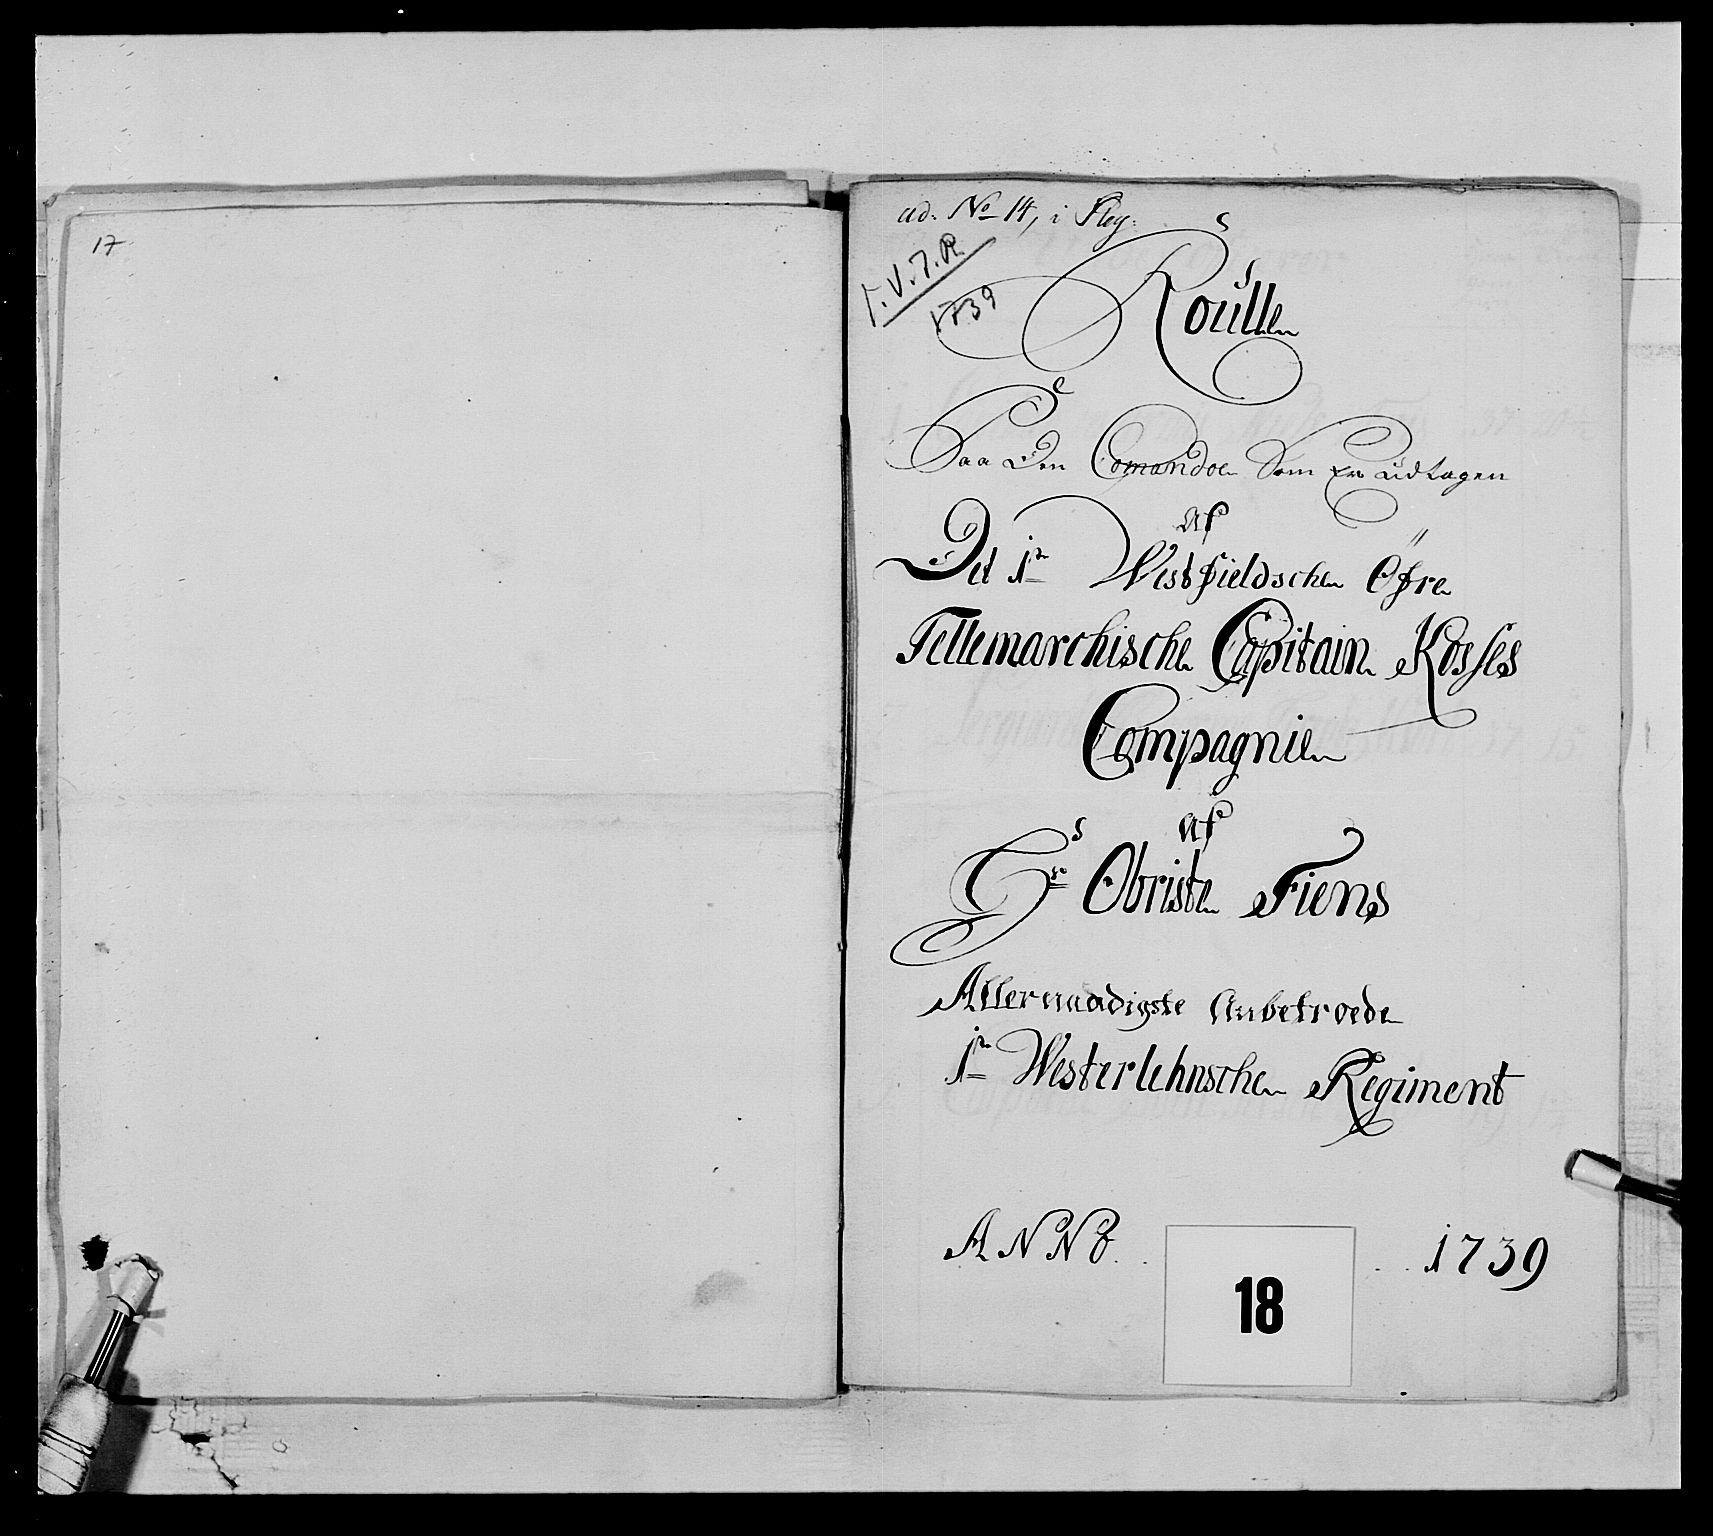 17
ad: No 14, i Pleg:
1. V. J. R.
1739
Roulle
Paa Den Comandoe Som Er udtagen
Af
Det 1te Westfieldsche Öfre
Tellemarchische Capitain Kosses
Compagnie
Af
Hr Obriste Fiens
Allernaadigste Anbetroede
1te Westerlehnsche Regiment
ANNO 1739
18